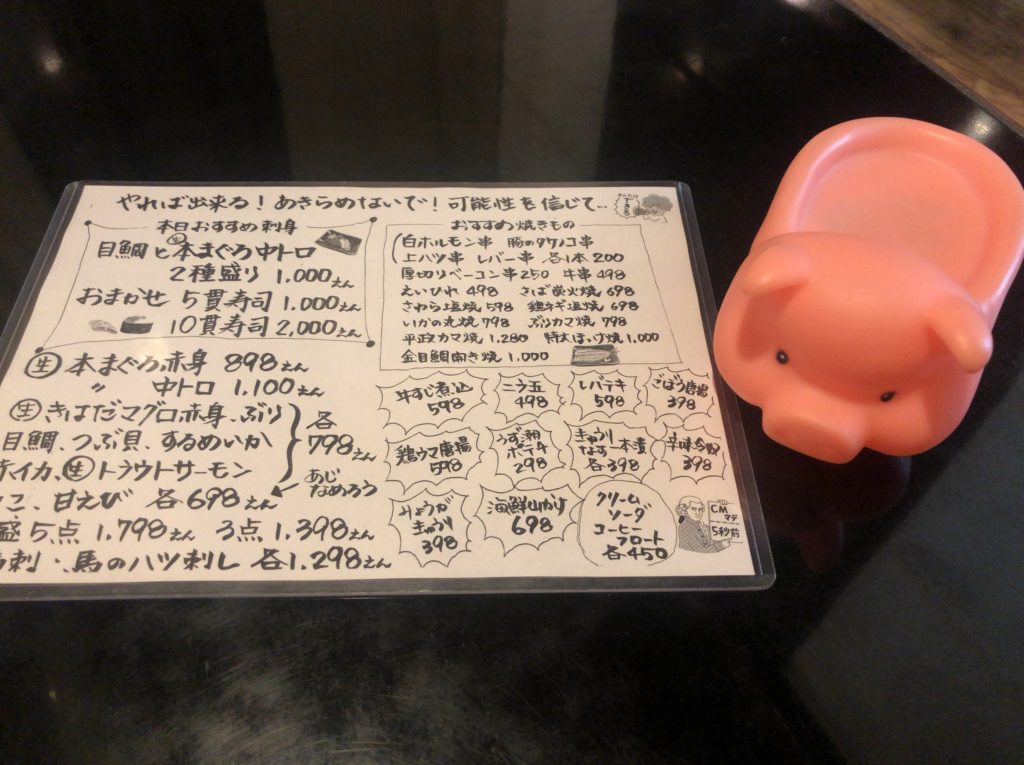 やれば出来る!あきらめないで!可能性を信じて..
本日おすすめ刺身
目鯛と生本まぐろ中トロ
2種盛り 1,000えん
おまかせ 5貫寿司 1,000えん
10貫寿司 2,000えん
生 本まぐろ赤身 898えん
〃 中トロ 1,100えん
生 きはだマグロ赤身、ぶり
目鯛、つぶ貝、するめいか
イカ、生トラウトサーモン
各798えん
こ、甘えび 各698えん
あじなめろう
盛 5点 1,798えん 3点 1,398えん
刺・馬のハツ刺し 各1,298えん
おすすめ焼きもの
白ホルモン串 豚のタケノコ串
上ハツ串 レバー串 各1本200
厚切りベーコン串250 牛串498
えいひれ 498 さば炭火焼 698
さわら塩焼 598 鶏ネギ塩焼 698
いかの丸焼 798 ぶりカマ焼 798
平政カマ焼 1,280 特大ほっけ焼 1,000
金目鯛開き焼 1,000
牛すじ煮込
598
ニラ玉
498
レバテキ
598
ごぼう唐揚
398
鶏ウマ唐揚
598
うず潮
ポテサ
298
きゅうり
なす 一本漬
各398
398
みょうが
きゅうり
398
海鮮山かけ
698
クリーム
ソーダ
コーヒー
フロート
各450
CM
マデ
5秒前